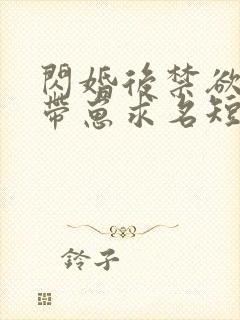 閃婚後禁欲
帶崽求名短
鈴子